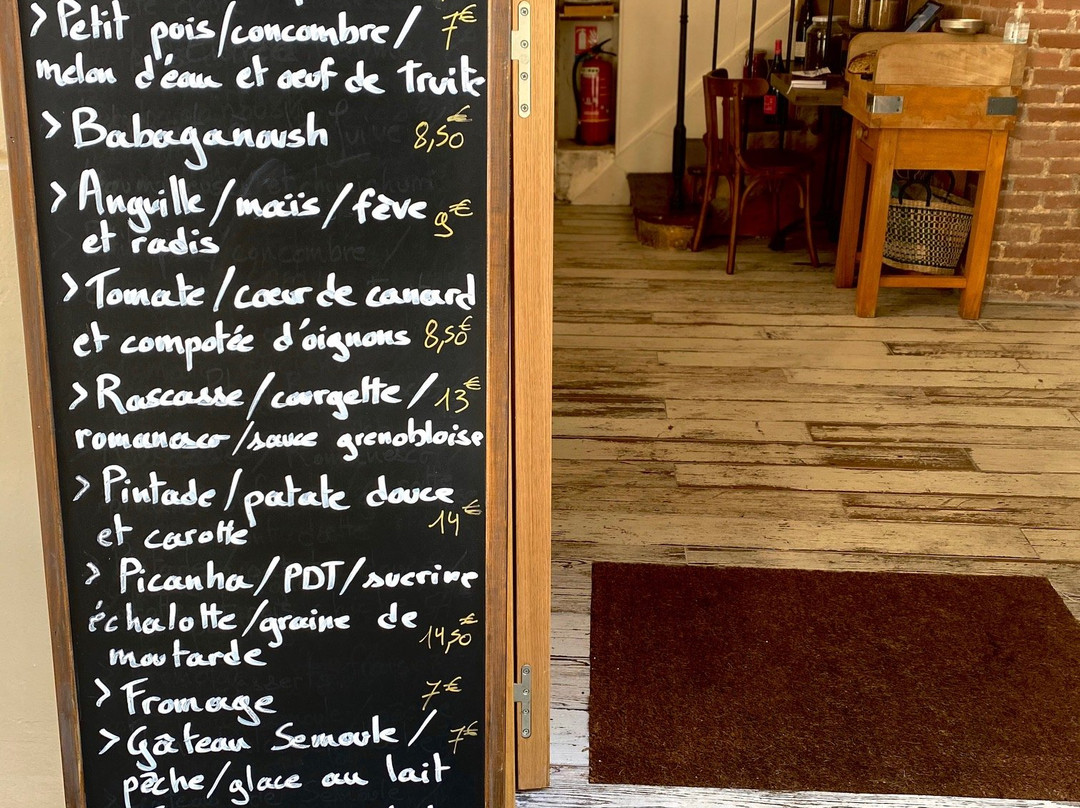 > Petit pois/concombre/ 7€
melon d'eau et oeuf de truite
> Babaganoush 8,50€
> Anguille/maïs/fève 9€
et radis
> Tomate/cœur de canard
et compotée d'oignons 8,50€
> Rascasse/courgette/ 13€
romanesco/sauce grenobloise
> Pintade/patate douce
et carotte 14€
> Picanha/PDT/sucrine
échalotte/graine de 14,50€
moutarde
> Fromage 7€
> Gâteau Semoule/ 7€
pêche/glace au lait